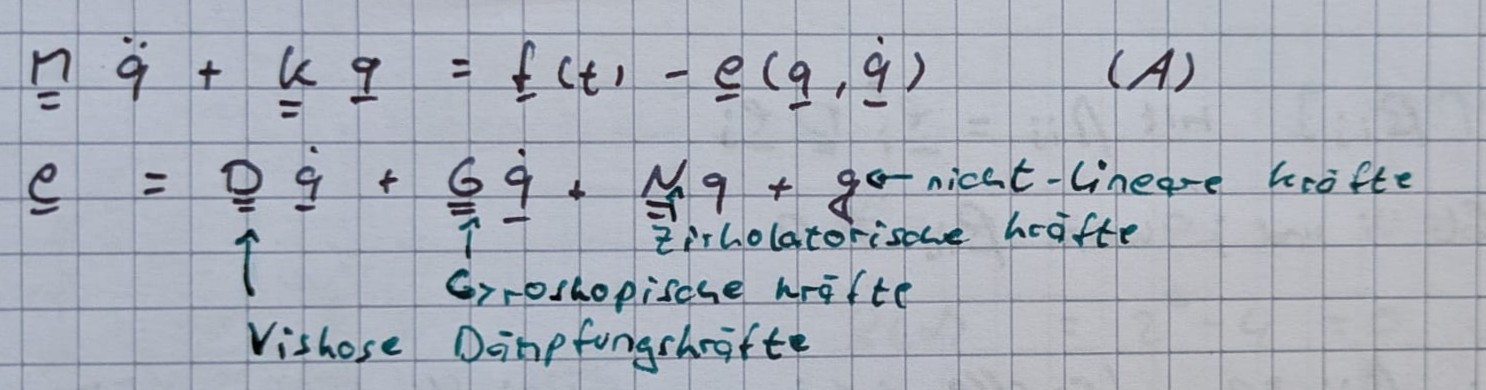 M q̈ + K q = f(t) - e(q, q̇) (A)
e = D q̇ + G q̇ + N q + g ← nicht-lineare Kräfte
Zirkolatorische Kräfte
Gyroskopische Kräfte
Viskose Dämpfungskräfte